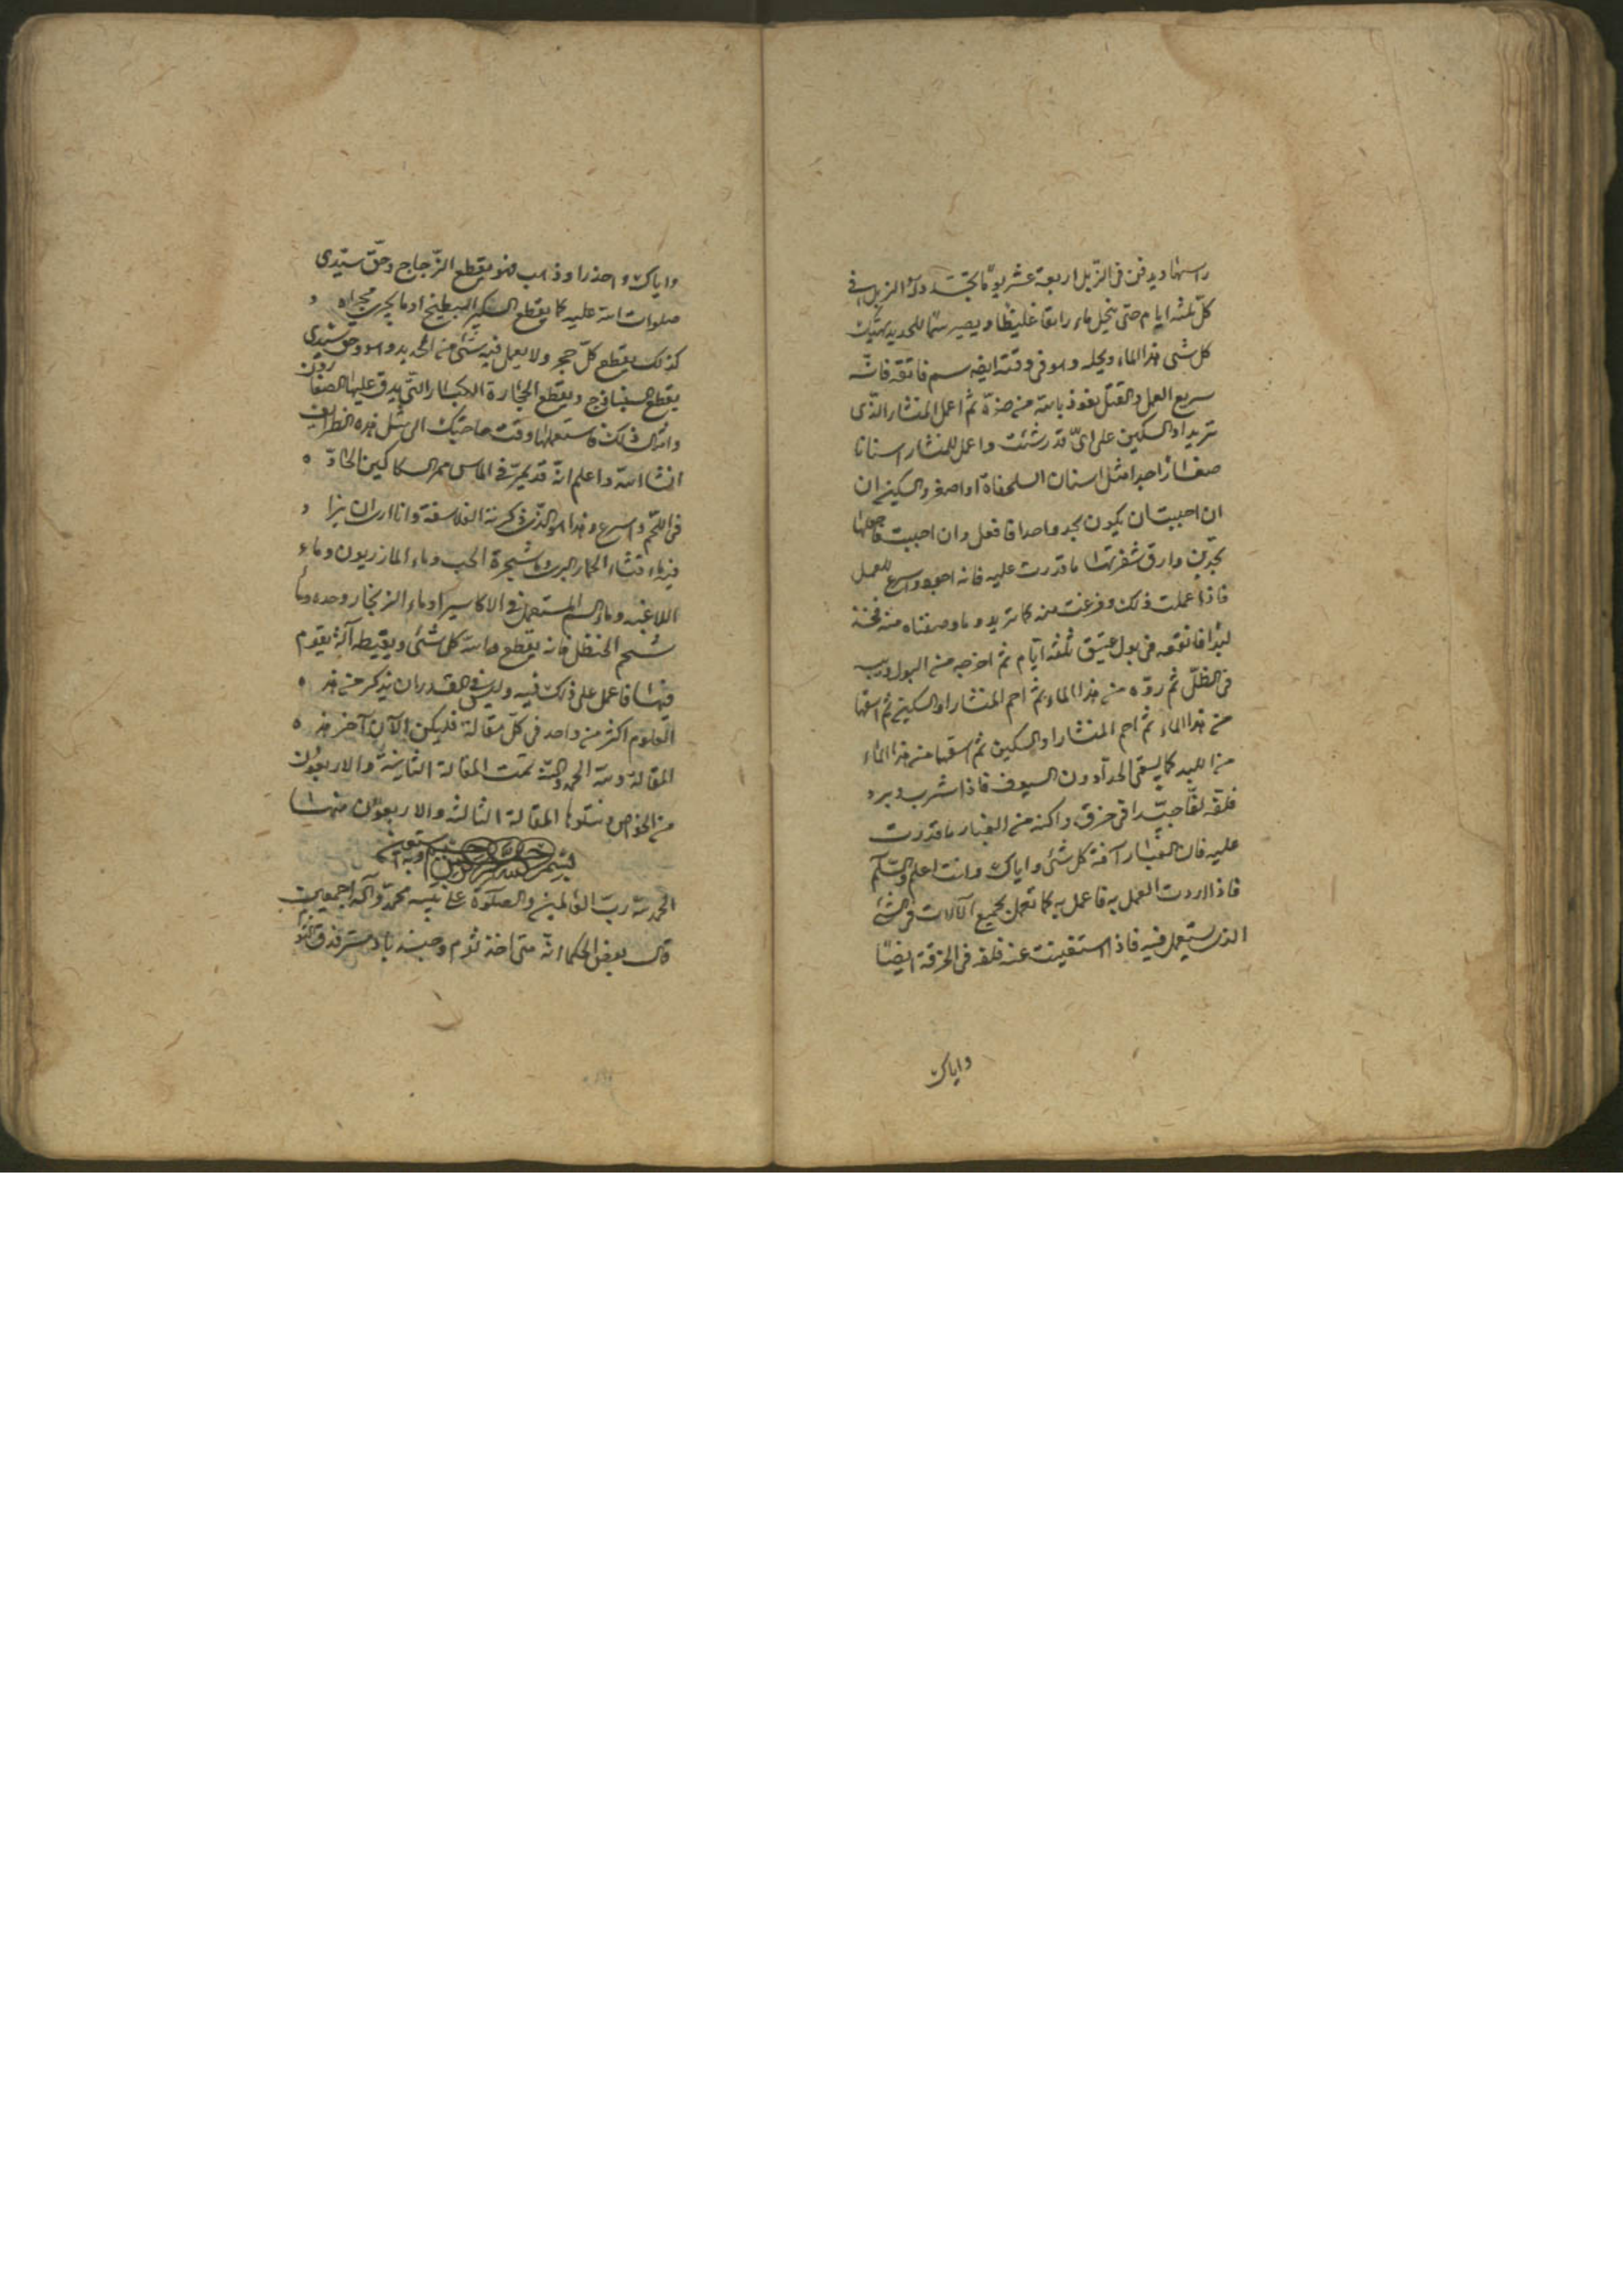 راسها ويدفن في الزبل اربعة عشر يوما يجدد له الزبل في
كل ثلثه ايام حتى ينحل ماء رايقا غليظا ويصير سما للحديد يهتك
كل شى هذا الماء ويحله وهو فى وقته ايضه سم فاتقه فانه
سريع العمل والقتل نعوذ بالله من ضره ثم اعمل المنشار الذى
تريد او السكين على اىّ قدر شئت واعمل للمنشار اسنانا
صغارا جدا مثل اسنان السلحفاة او اصغر والسكين ان
ان احببت ان يكون بحد واحد فافعل وان احببت فاجعلها
بحدين وارق شفرتها ما قدرت عليه فانه اجود واسرع للعمل
فاذا عملت ذلك وفرغت منه كما تريد وما وصفناه منه فخذ
لبدا فانقعه فى بول عتيق ثلثه ايام ثم اخرجه من البول
فى الظلّ ثم روّه من هذا الماء ثم احم المنشار او السكين ثم اسقها
من هذا الماء ثم احم المنشار او السكين ثم اسقها من هذا الماء
من اللبد كما يسقى الحداد ون السيوف فاذا شرب وبرد
فلفّه لفّا جيّدا فى خرق واكنه من الغبار ما قدرت
عليه فان الغبار آفة كل شئ واياك وانت اعلم والسّلم
فاذا اردت العمل به فاعمل به كما تعمل بجميع الآلات فى الشئ
الذى يستعمل فيه فاذا استغنيت عنه فلفه فى الخرقة ايضًا
واياك
واياك واحذرا وذهب فهو يقطع الزّجاج وحقّ سيّدى
صلوات الله عليه كما يقطع السكين البطيخ او ما يجرى مجراه
كذلك يقطع كلّ حجر ولا يعمل فيه شئ من الحديد وهو وحق سيدى
يقطع السنباذج ويقطع الحجارة الكبار التّى يدق عليها الصفارون
وامثال ذلك فاستعملها وقت حاجتك الى مثل هذه الطرايف
انشا الله واعلم انّه قد يمرّ فى الماس ممر السكاكين الحادّه
فى اللحم واسرع وهذا هو الذّى ذكرته الفلاسفة وانا ارى ان يزا
فيه ماء قثاء الحمار البرى وماء شجرة الحب وماء المازريون وماء
اللاغيه وماء السم المستعمل فى الاكاسير او ماء الزنجار وحده وما
شحم الحنظل فانه يقطع والله كل شئ آلة يقوم
فيها فاعمل على ذلك فيه وليس فى القدر ان يذكر من هذه
العلوم اكثر من واحد فى كلّ مقالة فليكن الآن آخر هذه
المقالة ولله الحمد والمنّة تمت المقالة الثانية والاربعون
من الخواص ويتلوها المقالة الثالثه والاربعون منها
بسم الله الرحمن الرحيم وبه نستعين
الحمد لله ربّ العالمين والصلوة على نبيه محمد وآله اجمعين
قال بعض الحكما انّه متى اخذ ثوم